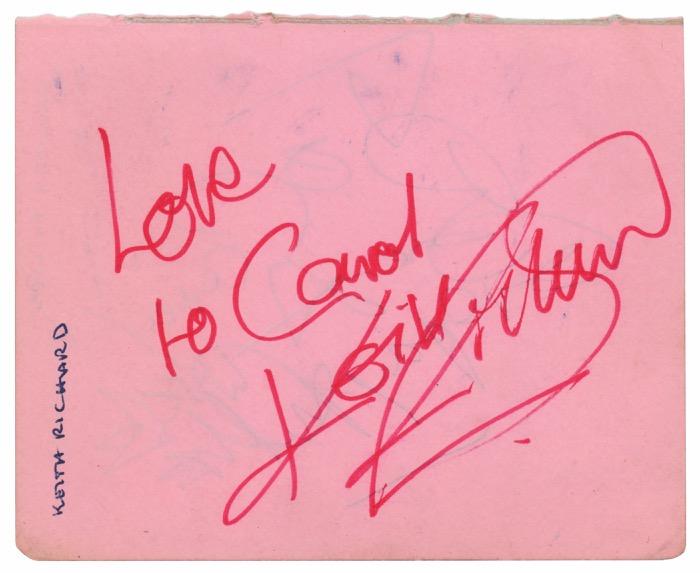 Love
to Carol
Keith Richard
KEITH RICHARD